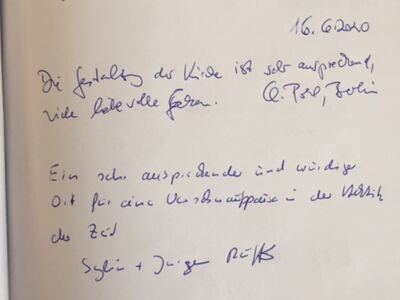 16.6.2020
Die Gestaltung der Kirche ist sehr ansprechend,
viele liebevolle Gesten. Berlin
Ein sehr ansprechender und würdiger
Ort für eine Verschnaufpause in der Hektik
der Zeit
Sylvia + Jürgen